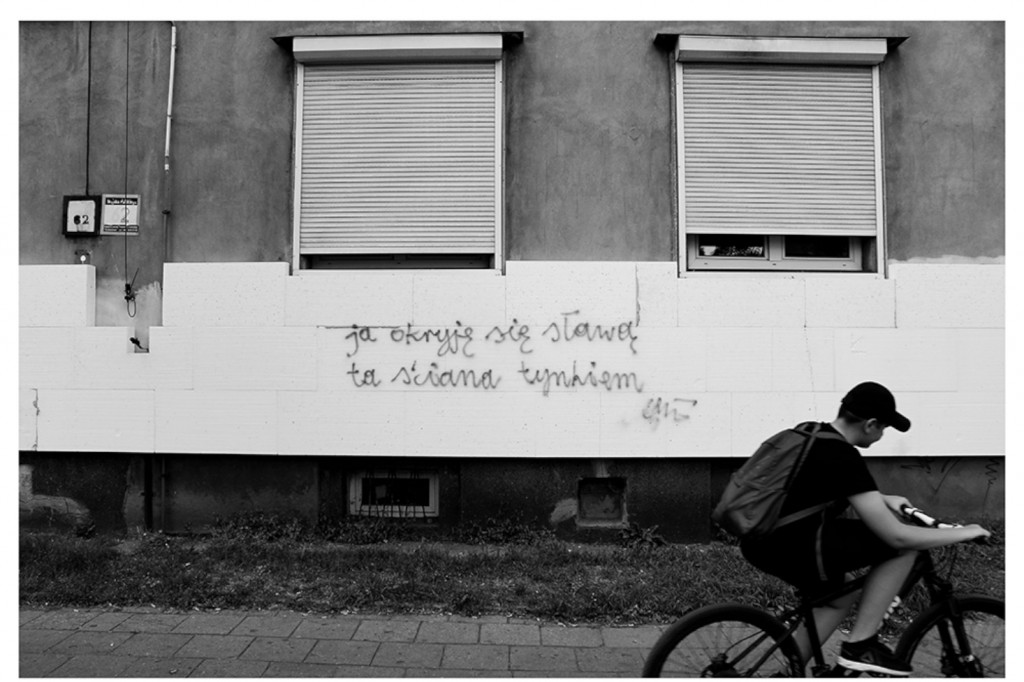 62
2
ja okryję się sławą
ta ściana tynkiem